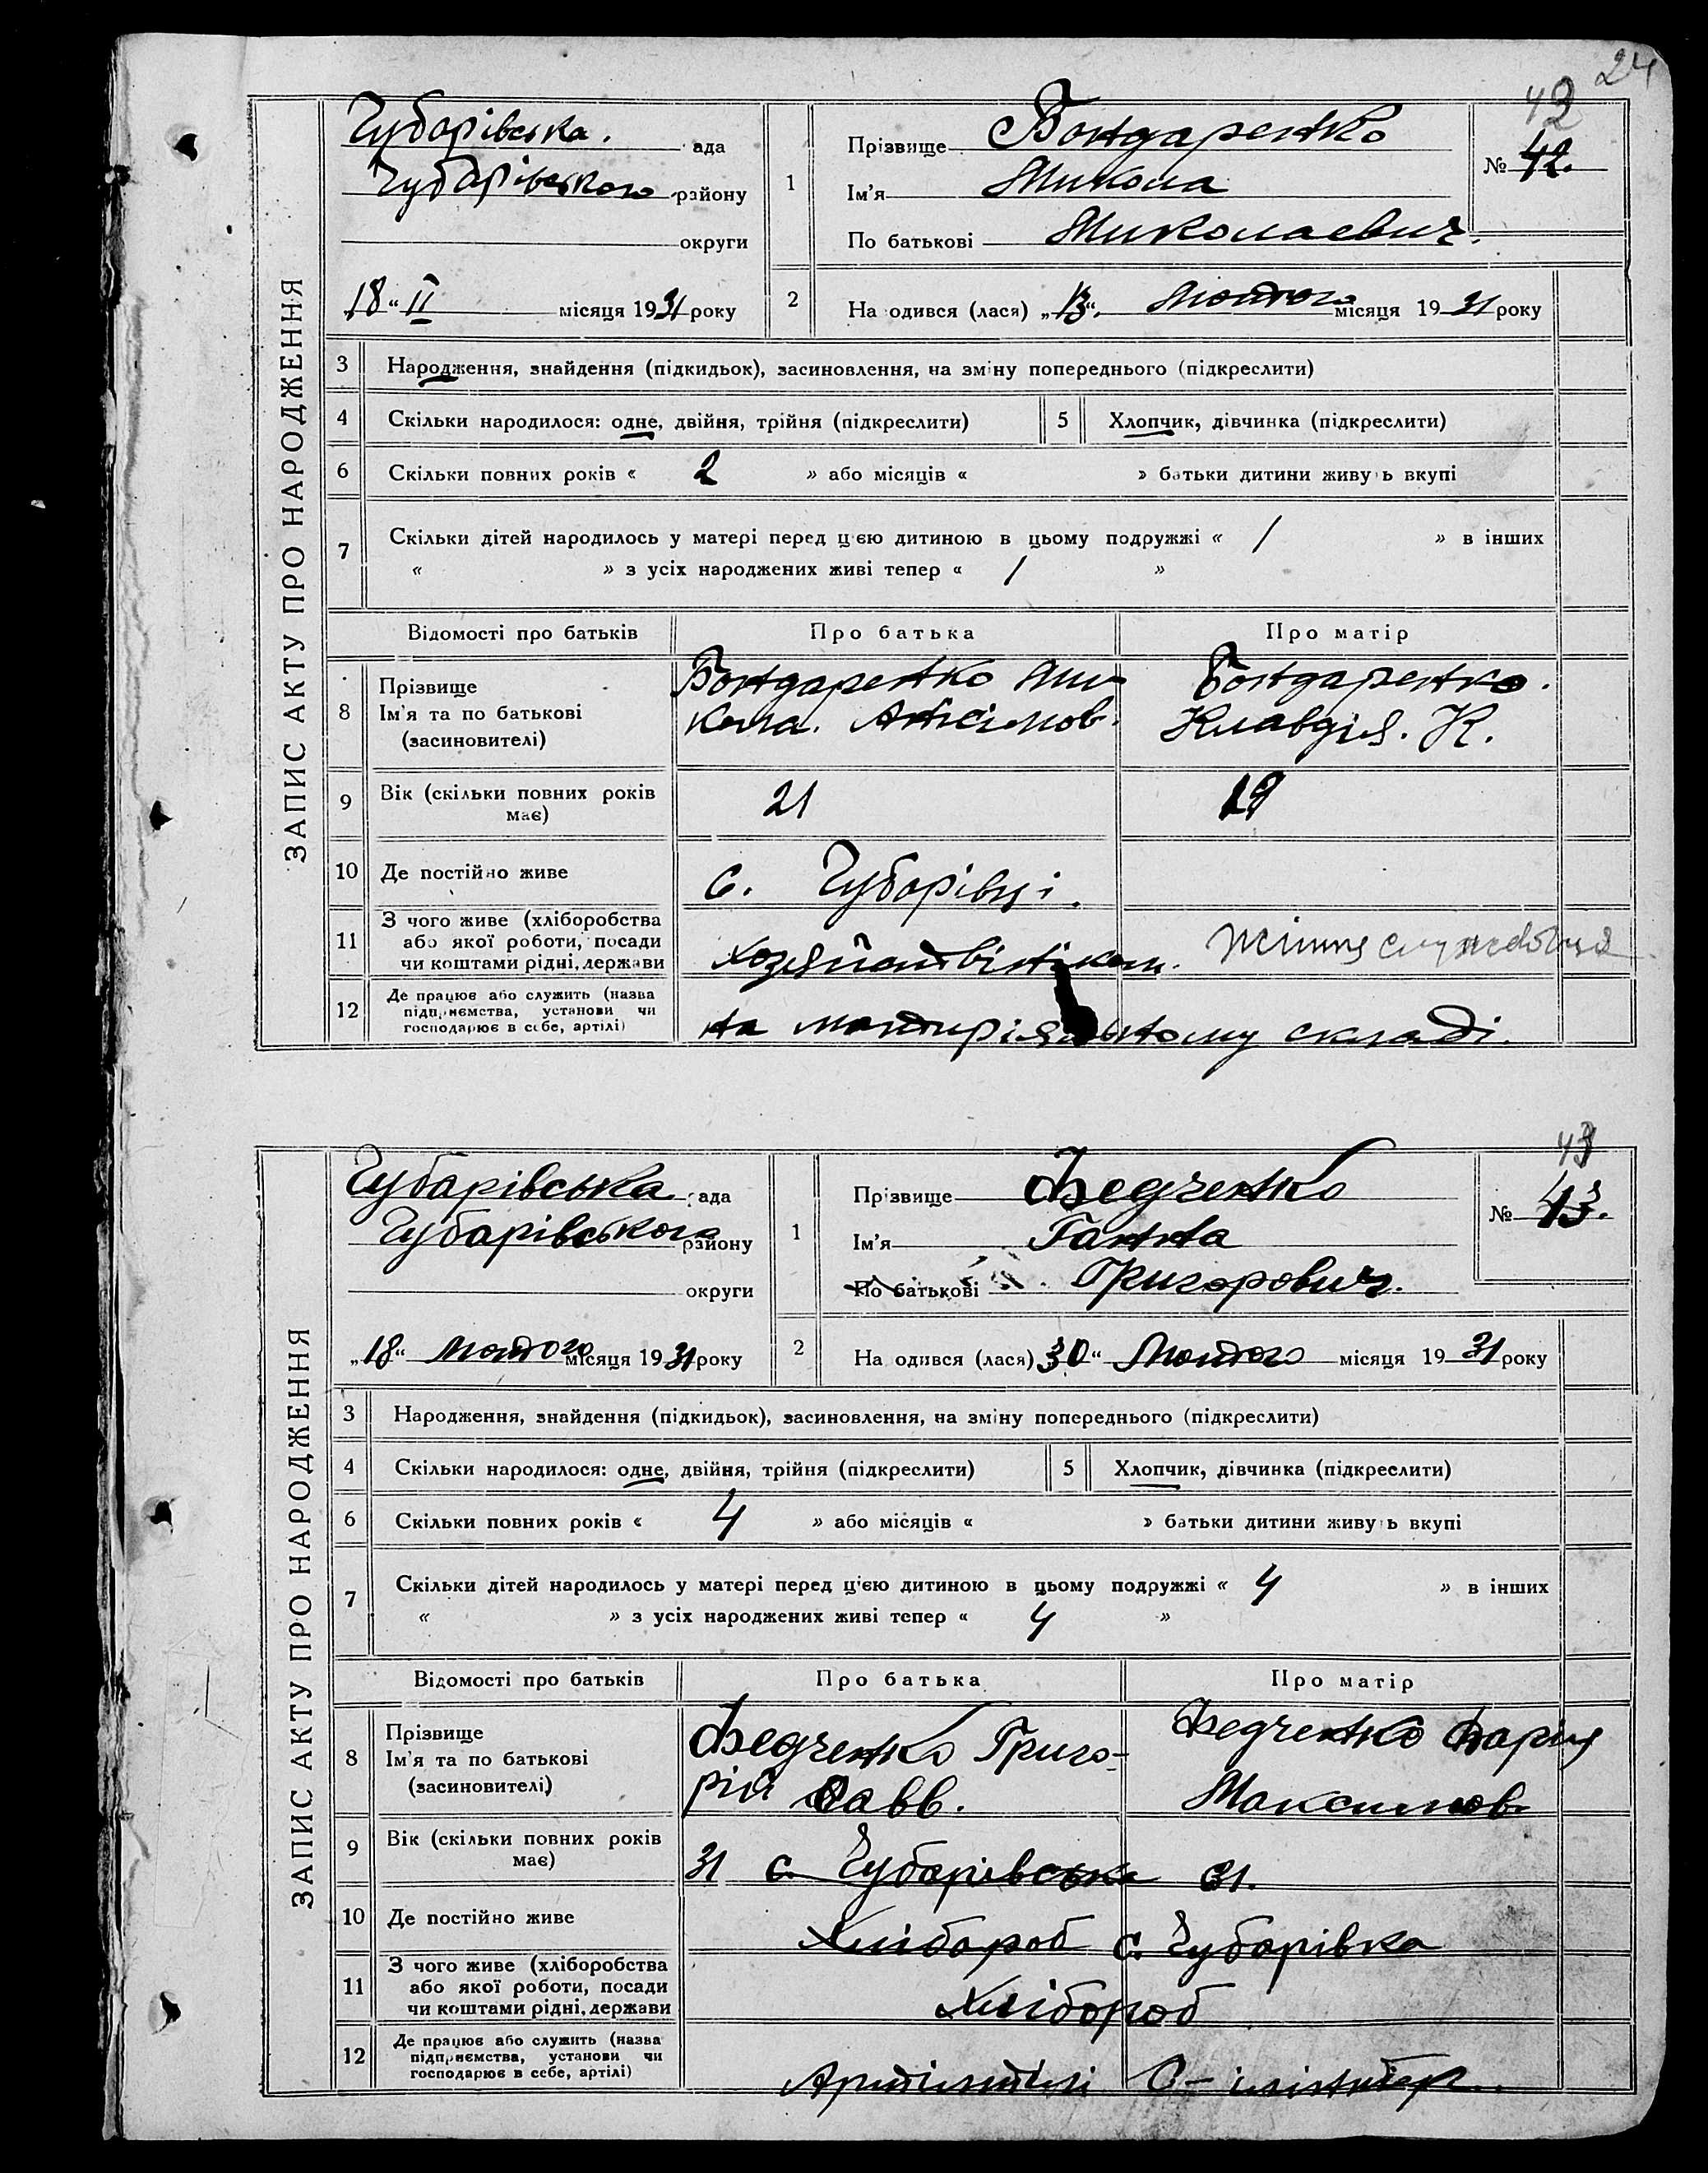 24
42
ЗАПИС АКТУ ПРО НАРОДЖЕННЯ
Чубарівська. рада
Чубарівського району
округи
18 " II місяця 1931 року
1
Прізвище Бондаренко
Ім'я Микола
По батькові Миколаевич.
№ 42.
2
На одився (лася) „13". Лютого місяця 1931 року
3 Народження, знайдення (підкидьок), засиновлення, на зміну попереднього (підкреслити)
4 Скільки народилося: одне, двійня, трійня (підкреслити) 5 Хлопчик, дівчинка (підкреслити)
6 Скільки повних років « 2 » або місяців « » батьки дитини живуть вкупі
7 Скільки дітей народилось у матері перед цією дитиною в цьому подружжі « 1 » в інших
« » з усіх народжених живі тепер « 1 »
Відомості про батьків Про батька Про матір
8 Прізвище Ім'я та по батькові (засиновителі)
Бондаренко Ми-
кола.
Бондаренко.
Клавдія. К.
9 Вік (скільки повних років має) 21 19
10 Де постійно живе с. Чубарівці.
11 З чого живе (хліборобства або якої роботи, посади чи коштами рідні, держави
12 Де працює або служить (назва підприємства, установи чи господарює в себе, артілі)
на матиріяльному складі.
43
ЗАПИС АКТУ ПРО НАРОДЖЕННЯ
Чубарівська рада
Чубарівського району
округи
„18" лютого місяця 1931 року
1
Прізвище Федченко
Ім'я Ганна
По батькові Григорович.
№ 43.
2
На одився (лася) 30" Лютого місяця 1931 року
3 Народження, знайдення (підкидьок), засиновлення, на зміну попереднього (підкреслити)
4 Скільки народилося: одне, двійня, трійня (підкреслити) 5 Хлопчик, дівчинка (підкреслити)
6 Скільки повних років « 4 » або місяців « » батьки дитини живуть вкупі
7 Скільки дітей народилось у матері перед цією дитиною в цьому подружжі « 4 » в інших
« » з усіх народжених живі тепер « 4 »
Відомості про батьків Про батька Про матір
8 Прізвище Ім'я та по батькові (засиновителі)
Федченко Григо-
рій Савв.
Федченко Дарія
Максимов
9 Вік (скільки повних років має) 31 с. Чубарівська 31.
10 Де постійно живе Хлібороб с. Чубарівка
11 З чого живе (хліборобства або якої роботи, посади чи коштами рідні, держави
Хлібороб
12 Де працює або служить (назва підприємства, установи чи господарює в себе, артілі)